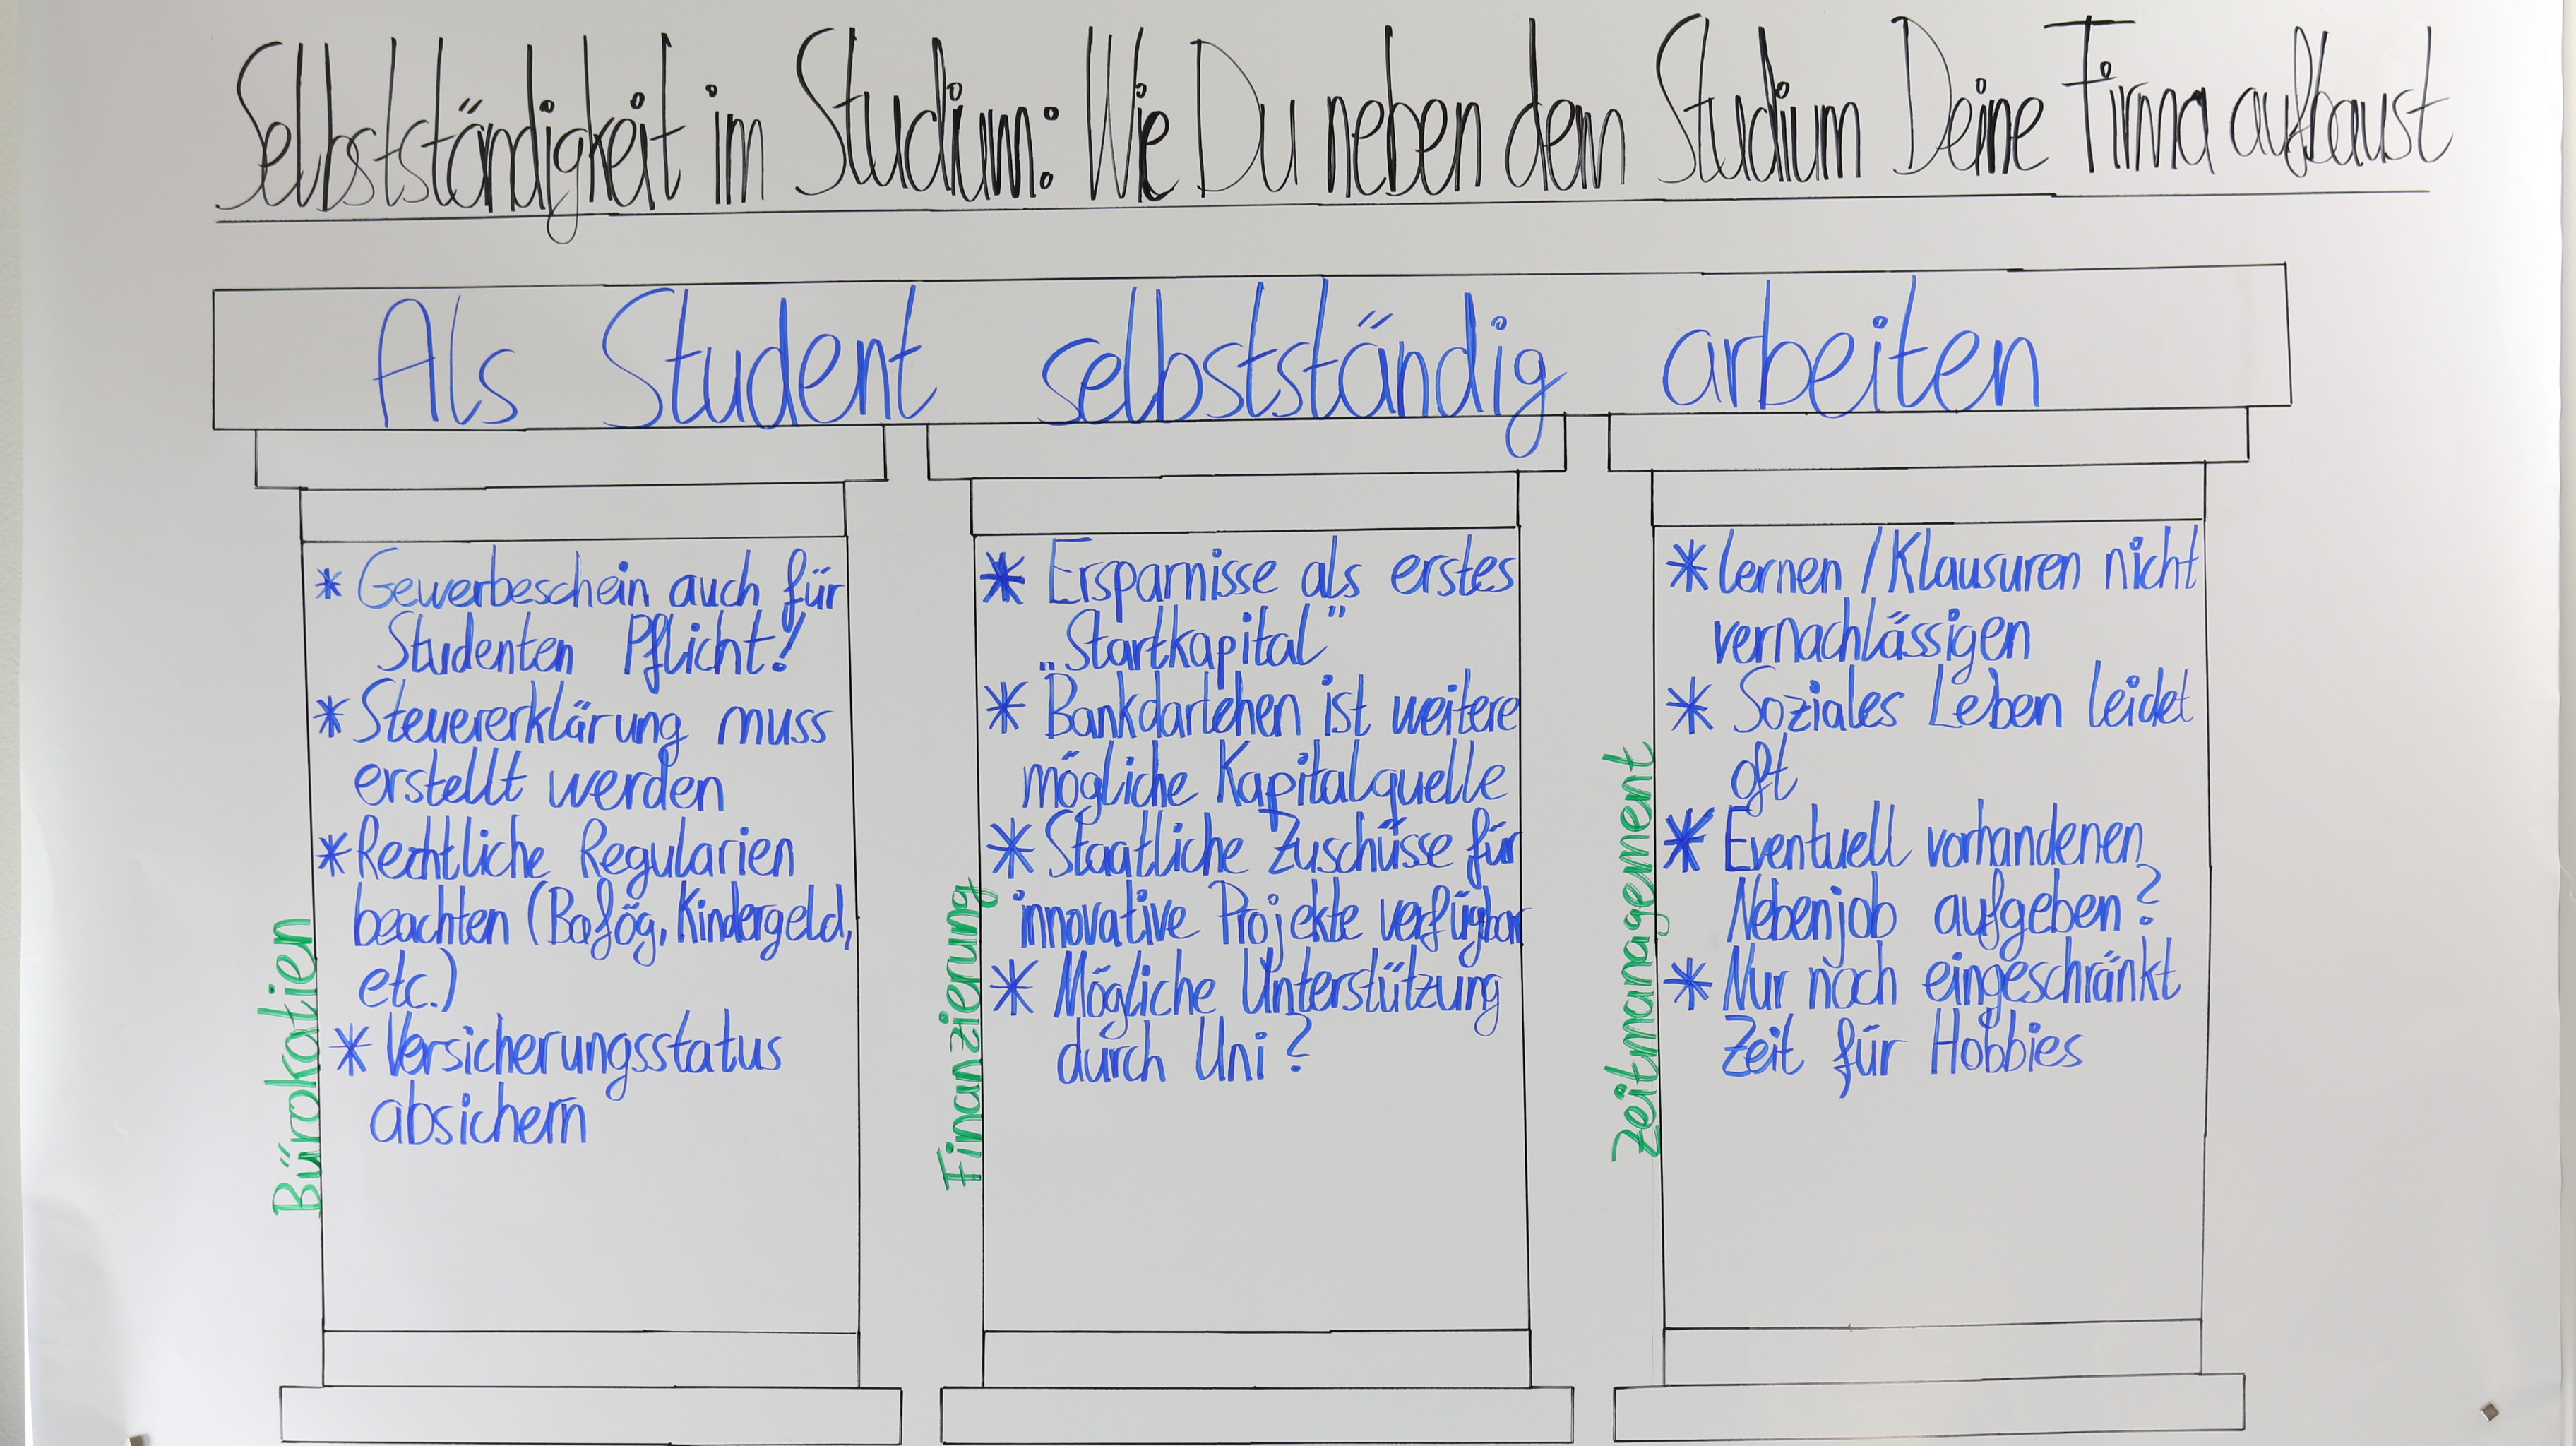 Selbstständigkeit im Studium: Wie Du neben dem Studium Deine Firma aufbaust
Als Student selbstständig arbeiten
Bürokatien
* Gewerbeschein auch für
Studenten Pflicht!
* Steuererklärung muss
erstellt werden
* Rechtliche Regularien
beachten (Bafög, Kindergeld,
etc.)
* Versicherungsstatus
absichern
Finanzierung
* Ersparnisse als erstes
„Startkapital”
* Bankdarlehen ist weitere
mögliche Kapitalquelle
* Staatliche Zuschüsse für
innovative Projekte verfügbar
* Mögliche Unterstützung
durch Uni?
Zeitmanagement
* lernen / Klausuren nicht
vernachlässigen
* Soziales Leben leidet
oft
* Eventuell vorhandenen
Nebenjob aufgeben?
* Nur noch eingeschränkt
Zeit für Hobbies